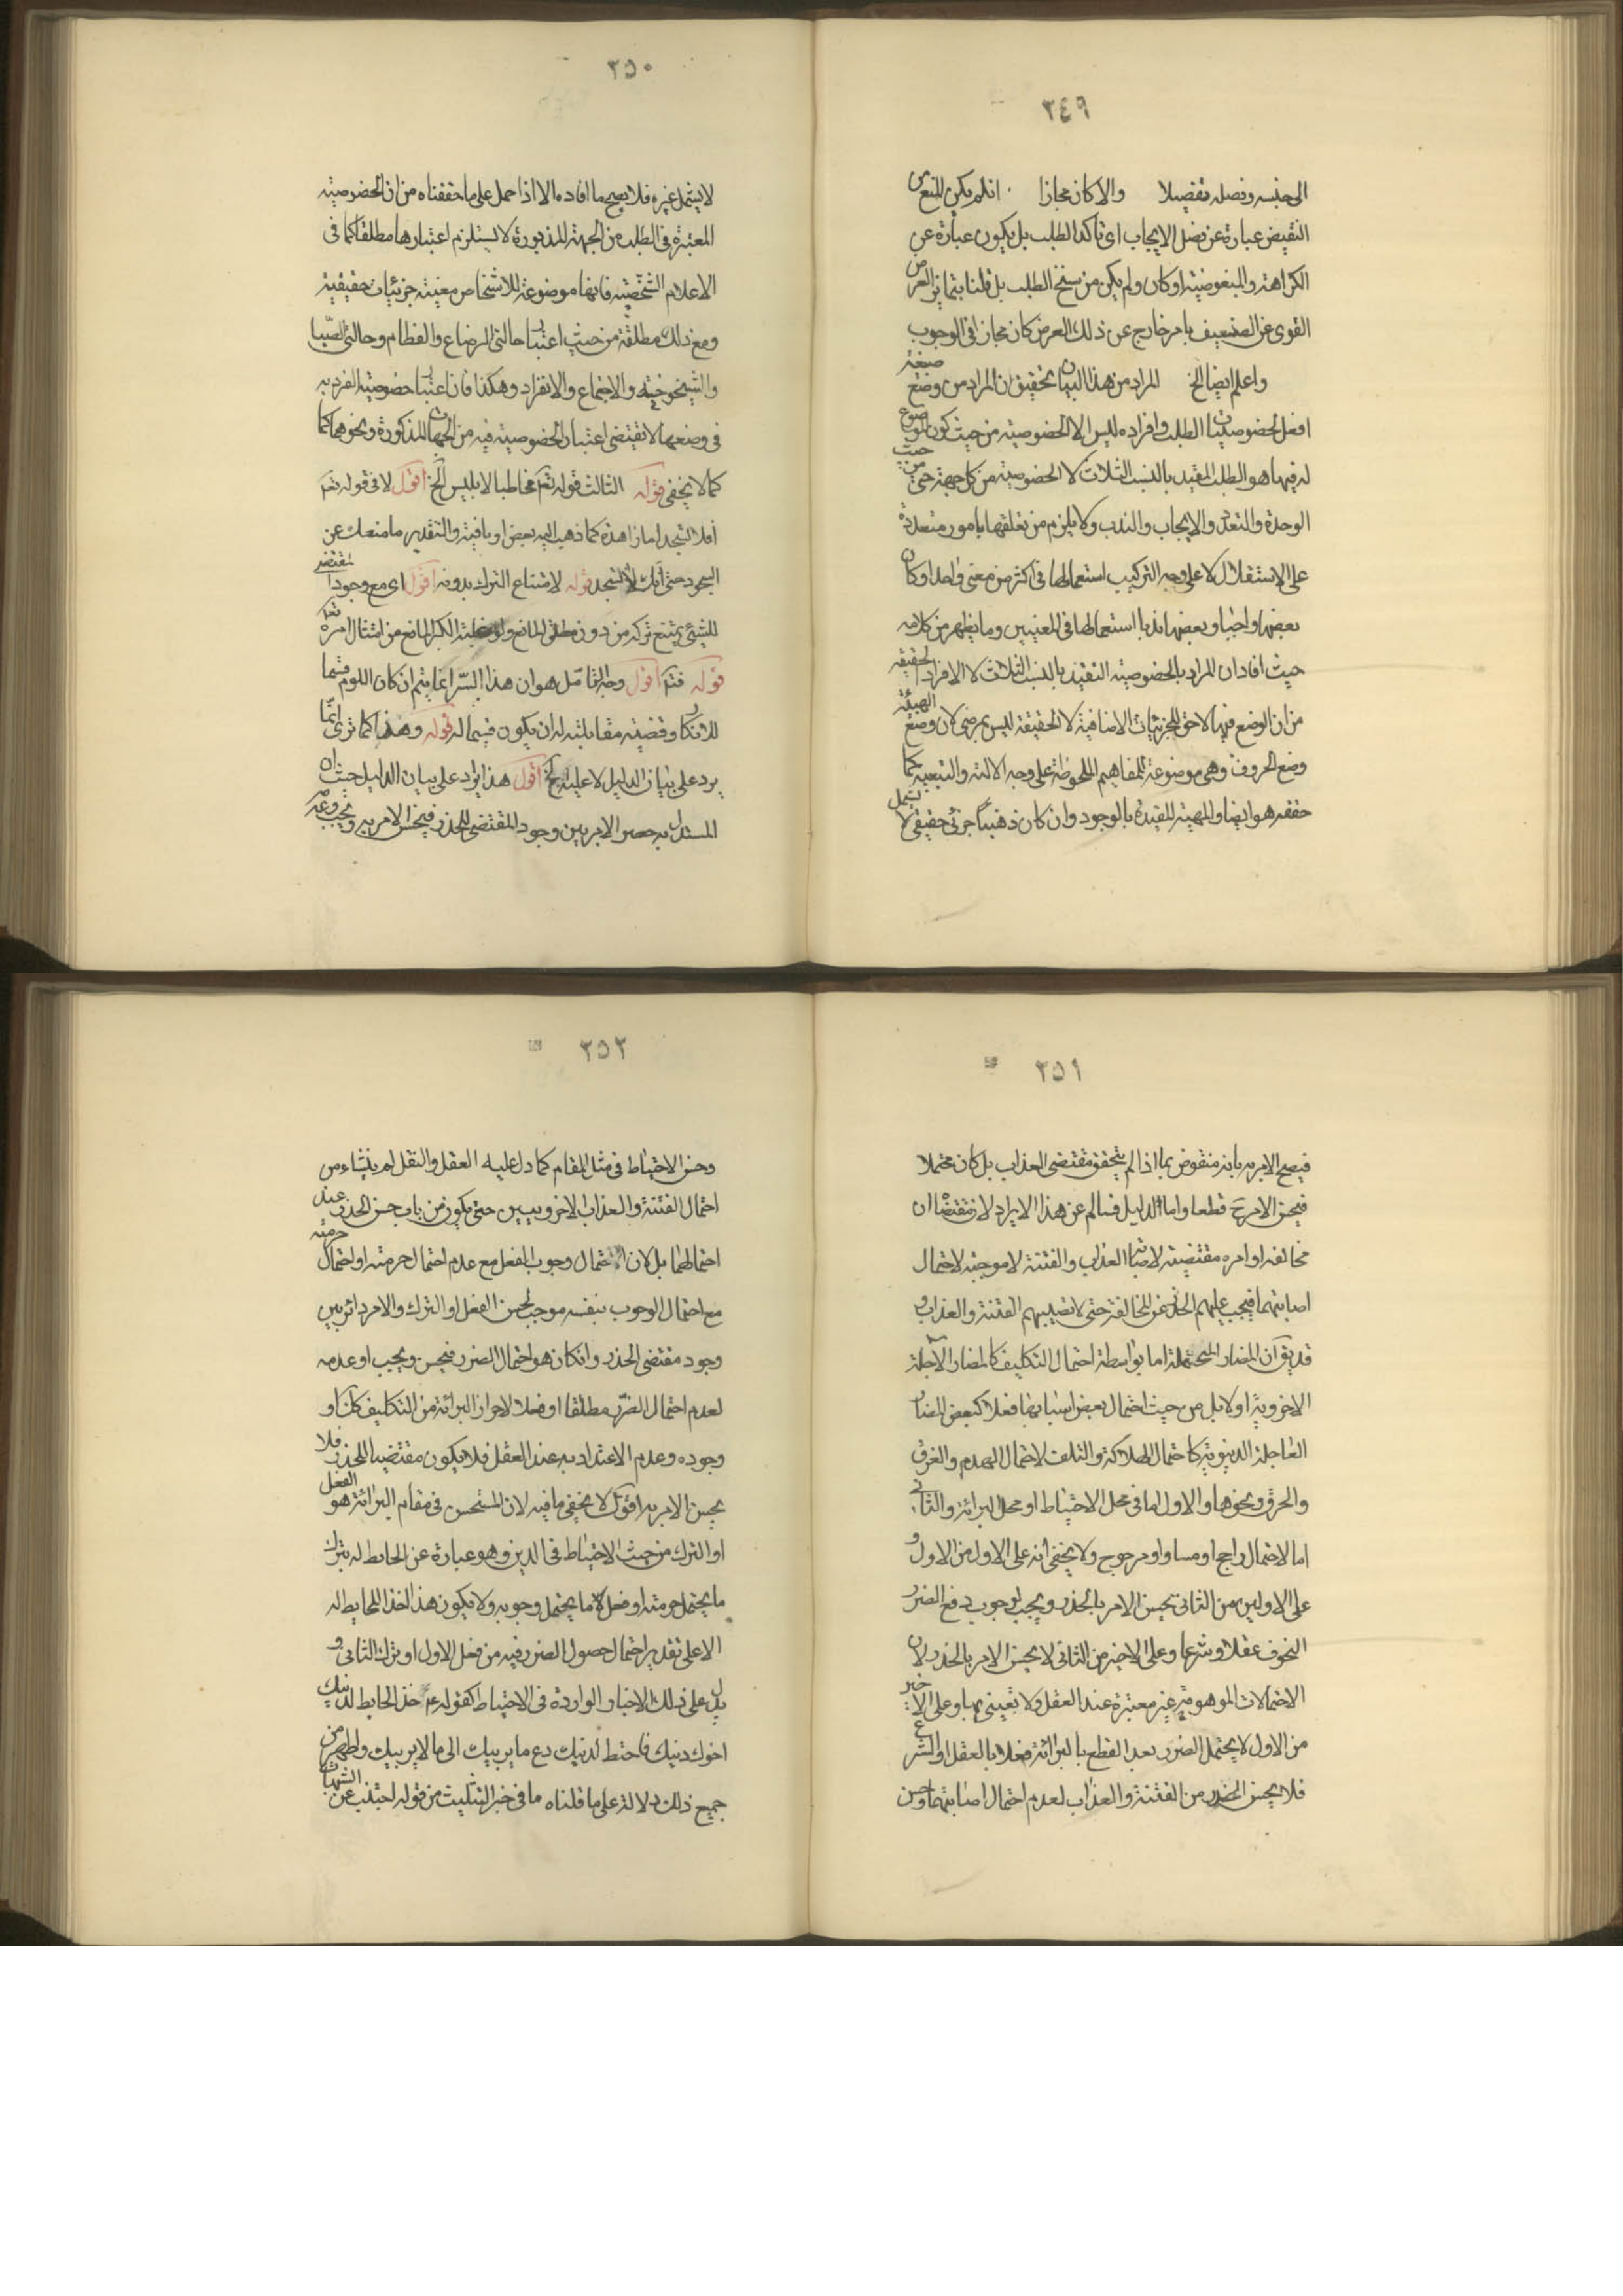 ٣٤٩
الى جنسه وفصله تفصيلا والا كان مجازا انلم يكن المنع من
النقيض عبارة عن فصل الايجاب اى تأكد الطلب بل يكون عبارة عن
الكراهة والمبغوضية او كان ولم يكن من سنخ الطلب بل قلنا بتمايز العرض
القوى عن الضعيف بامر خارج عن ذلك العرض كان مجازا فى الوجوب
واعلم ايضا الخ المراد من هذا البيان تحقيق ان المراد من وضع صيغة
افعل لخصوصيات الطلب وافراده ليس الا الخصوصية من حيث كون الموضوع
له فيها هو الطلب المقيد بالنسب الثلاث لا الخصوصية من كل جهة حتى من حيث
الوحدة والتعدد والايجاب والندب ولا يلزم من تعلقها بامور متعددة
على الاستقلال لا على وجه التركيب استعمالها فى اكثر من معنى واحد او كان
بعضها واجبا وبعضها ندبا استعمالها فى المعنيين وما يظهر من كلامه
حيث افاد ان المراد بالخصوصية التقييد بالنسب الثلاث لا الافراد الحقيقية
من ان الوضع فيها لاحق للجزئيات الاضافية لا الحقيقة ليس بمرضى لان وضع الهيئة
وضع الحروف وهى موضوعة للمفاهيم الملحوظة على وجه الالية والتبعية كما
حققه هو ايضا والمهية المقيدة بالوجود وان كان ذهنيا جزئى حقيقى لا يشمل
٣٥٠
لا يشمل غيره فلا يصح ما افاده الا اذا حمل على ما حققناه من ان الخصوصية
المعتبرة فى الطلب من الجهة المذبورة لا يستلزم اعتبارها مطلقا كما فى
الاعلام الشخصية فانها موضوعة للاشخاص معينة جزئيات حقيقية
ومع ذلك مطلقة من حيث اعتبار حالتى الرضاع والفطام وحالتى الصبا
والشيخوخية والاجتماع والانفراد وهكذا فان اعتبار خصوصية الفردية
فى وضعها لا تقتضى اعتبار الخصوصية فيه من الجهات المذكورة ونحوهما كما
كما لا يخفى قوله الثالث قوله تعم مخاطبا لابليس الخ اقول لا فى قوله تعم
ان لا تسجد اما زاهدة كما ذهب اليه بعض او نافية والتقدير ما منعك عن
السجود حتى انك لا تسجد قوله لامتناع الترك بدونه اقول اى مع وجود المقتضى
للشىء يمتنع تركه من دون مطلق المانع ولو علية الكبر المانع من امتثال امره تعم
قوله فتم اقول وجه التأمل هو ان هذا السر انما يتم ان كان اللوم قسما
للانكار وقضية مقابلته له ان يكون قسيما له قوله وهذا كما ترى انما
يرد على بيان الدليل لا عليه الخ اقول هذا يراد على بيان الدليل حيث ان
المستدل به حصر الامر بين وجود المقتضى للحذر فيحسن الامر به ويجب وعدمه
٣٥١
فيصح الامر به بانه منقوض بما اذا لم يتحقق مقتضى العذاب بل كان محتملا
فيحسن الامر ح قطعا واما الدليل فسالم عن هذا الايراد لان مقتضاه ان
مخالفه اوامره مقتضية لاصابة العذاب والفتنة لا موجبة لاحتمال
اصابتهما فيجب عليهم الحذر عن المخالفة حتى لا تصيبهم الفتنة والعذاب و
قد يق ان المضار المحتملة اما بواسطة احتمال التكليف كالمضار الآجلة
الاخروية او لا بل من حيث احتمال بعض اسبابها فعلا كبعض المضار
العاجلة الدنيوية كاحتمال الهلاكة والتلف لاحتمال الهدم والغرق
والحرق ونحوها والاول اما فى محل الاحتياط او محل البرائة والثانى
اما لاحتمال راجح او مساو او مرجوح ولا يخفى انه على الاول من الاول و
على الاولين من الثانى يحسن الامر بالحذر ويجب لوجوب دفع الضرر
المخوف عقلا وشرعا وعلى الاخير من الثانى لا يحسن الامر بالحذر لان
الاحتمالات الموهومة غير معتبرة عند العقل ولا تعيني بها وعلى الاخير
من الاول لا يحتمل الضرر بعد القطع بالبرائة فعلا بالعقل او الشرع
فلا يحسن الحذر من الفتنة والعذاب لعدم احتمال اصابتهما وحسن
٣٥٢
وحسن الاحتياط فى مثل المقام كما دل عليه العقل والنقل لم ينشاء من
احتمال الفتنة والعذاب الاخرويين حتى يكون من باب حسن الحذر عند
احتمالهما بل لان احتمال وجوب الفعل مع عدم احتمال حرمته او احتمال حرمته
مع احتمال الوجوب بنفسه موجب لحسن الفعل او الترك والامر دائر بين
وجود مقتضى الحذر وان كان هو احتمال الضرر فيحسن ويجب او عدمه
لعدم احتمال الضرر مطلقا او فعلا لاحراز البرائة من التكليف كان او
وجوده وعدم الاعتداد به عند العقل فلا يكون مقتضيا للحذر فلا
يحسن الامر به اقول لا يخفى ما فيه لان المستحسن فى مقام البرائة هو الفعل
او الترك من حيث الاحتياط فى الدين وهو عبارة عن الحائط له بترك
ما يحتمل حرمته او فعل ما يحتمل وجوبه ولا يكون هذا اخذا للحايط له
الا على تقدير احتمال حصول الضرر فيه من فعل الاول او ترك الثانى و
يدل على ذلك الاخبار الواردة فى الاحتياط كقوله ع خذ الحايط لدينك
اخوك دينك فاحتط لدينك دع ما يريبك الى ما لا يريبك واظهر من
جميع ذلك دلالة على ما قلناه ما فى خبر التثليت من قوله اجتنب عن الشبهات